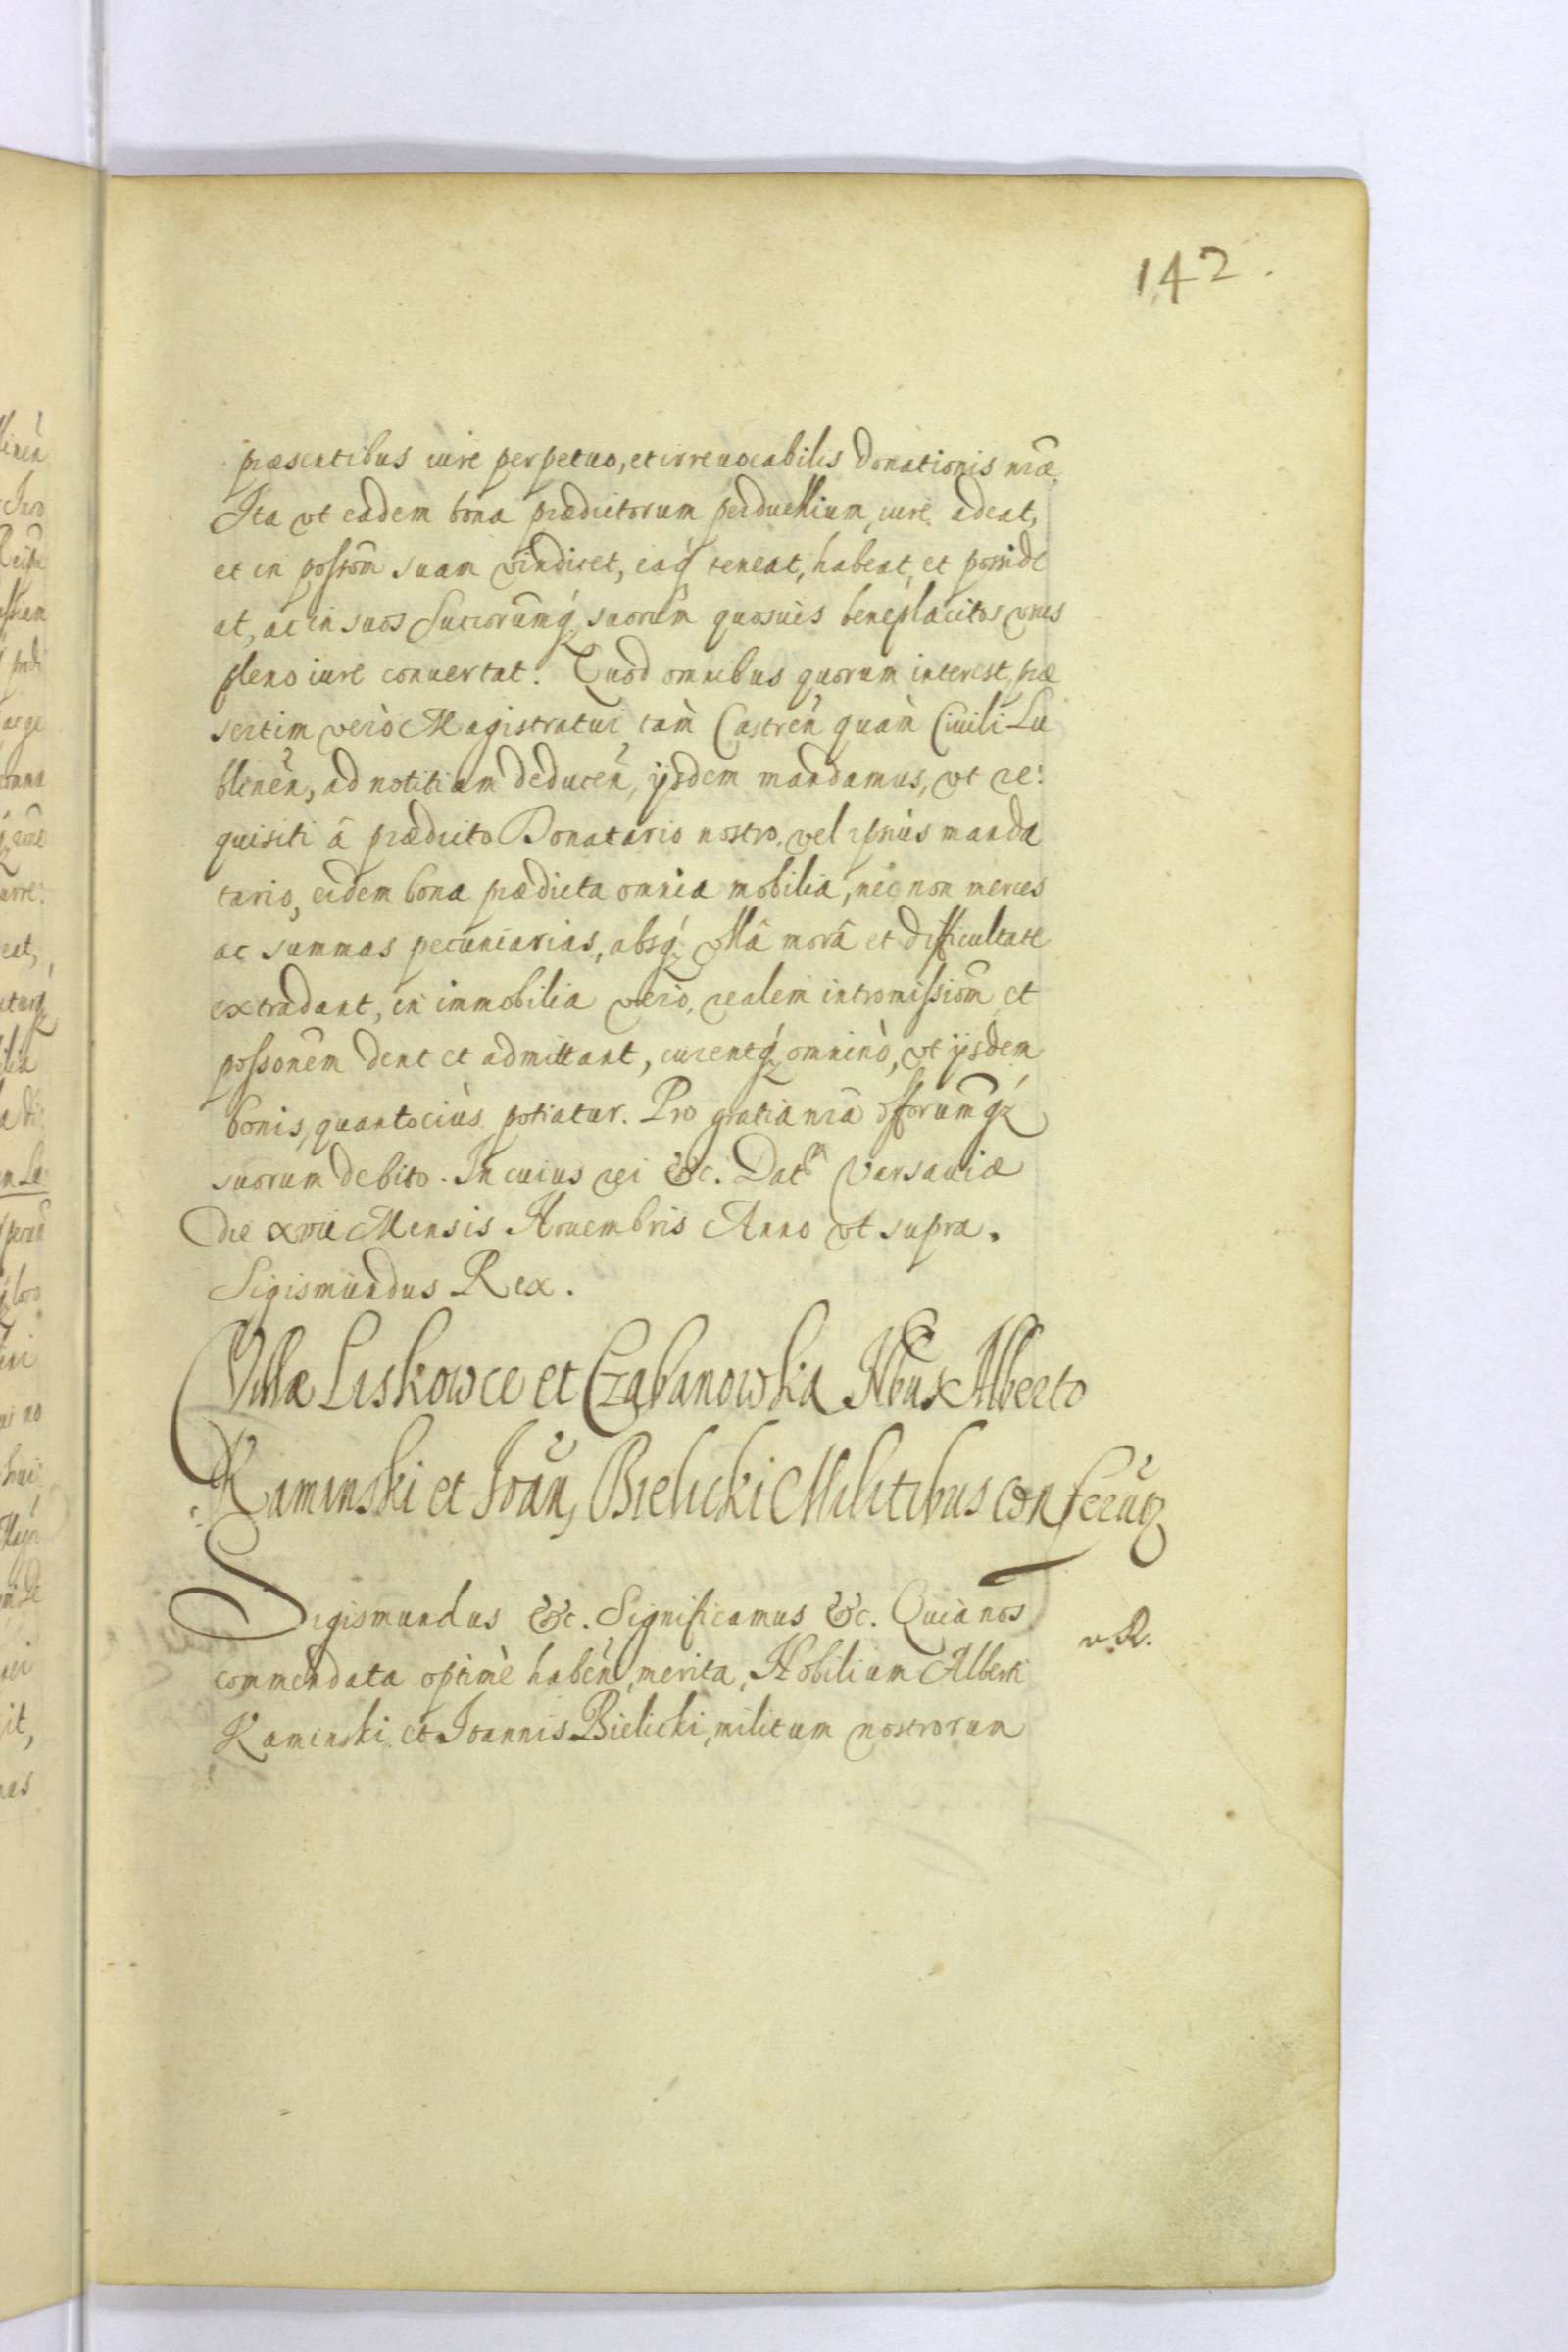 142.
præsentibus iure perpetuo, et irreuocabilis donationis nr̃æ.
Ita vt eadem bona prædictorum perduellium, iure adeat,
et in possom̃ suam vindicet, eaq́ teneat, habeat, et posside
at, ac in suos Succorum̃q́ suorum quosuis beneplacitos vsus
pleno iure conuertat. Quod omnibus quorum interest, præ
sertim verò Magistratui tàm Castren̄ quàm Ciuili Lu
blinen̄, ad notitiam deducen̄, ijsdem mandamus, vt re:
quisiti â prædicto Donatario nostro, vel ipsius manda
tario, eidem bona prædicta omnia mobilia, nec non merces
ac summas pecuniarias, absq́ vllâ morâ et difficultate
extradant, in immobilia verò, realem intromissiom̃ et
possonem̃ dent et admittant, curentq́ omninò, vt ijsdem
bonis, quantociùs potiatur. Pro gratia nr̃a offorum̃q́
suorum debito. In cuius rei &c. Datm̄ Varsauiæ
die xvii Mensis Nouembris Anno vt supra.
Sigismundus Rex.
Villæ Liskowce et Czabanowka Nbus Alberto
Kaminski et Ioan̄, Bielicki Militibus conferun̄tz
Sigismundus &c. Significamus &c. Quia nos
commendata optimè haben̄, merita, Nobilium Alberti
Kaminski et Ioannis Bielicki, militum nostrorum